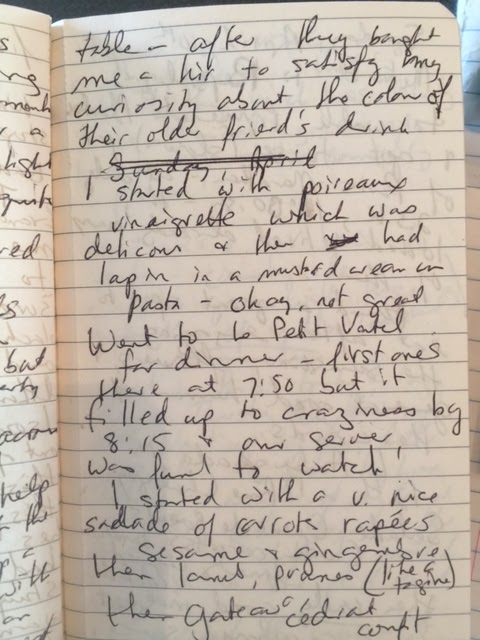 s
ng
month
r a
light
quite
red
ds
but
arty
across
help
the
p a
with
an
table – after they bought
me a kir to satisfy my
curiosity about the color of
their older friend's drink
Sunday, April
I started with poireaux
vinaigrette which was
delicous & then had
lapin in a mustard cream on
pasta – okay, not great
Went to Le Petit Vatel
for dinner – first ones
there at 7:50 but it
filled up to craziness by
8:15 & our server
was fun to watch!
I started with a v. nice
salade of carote rapées
sesame & gingembre
then lamb, prunes (like a
tagine)
then gateau cédrat
confit